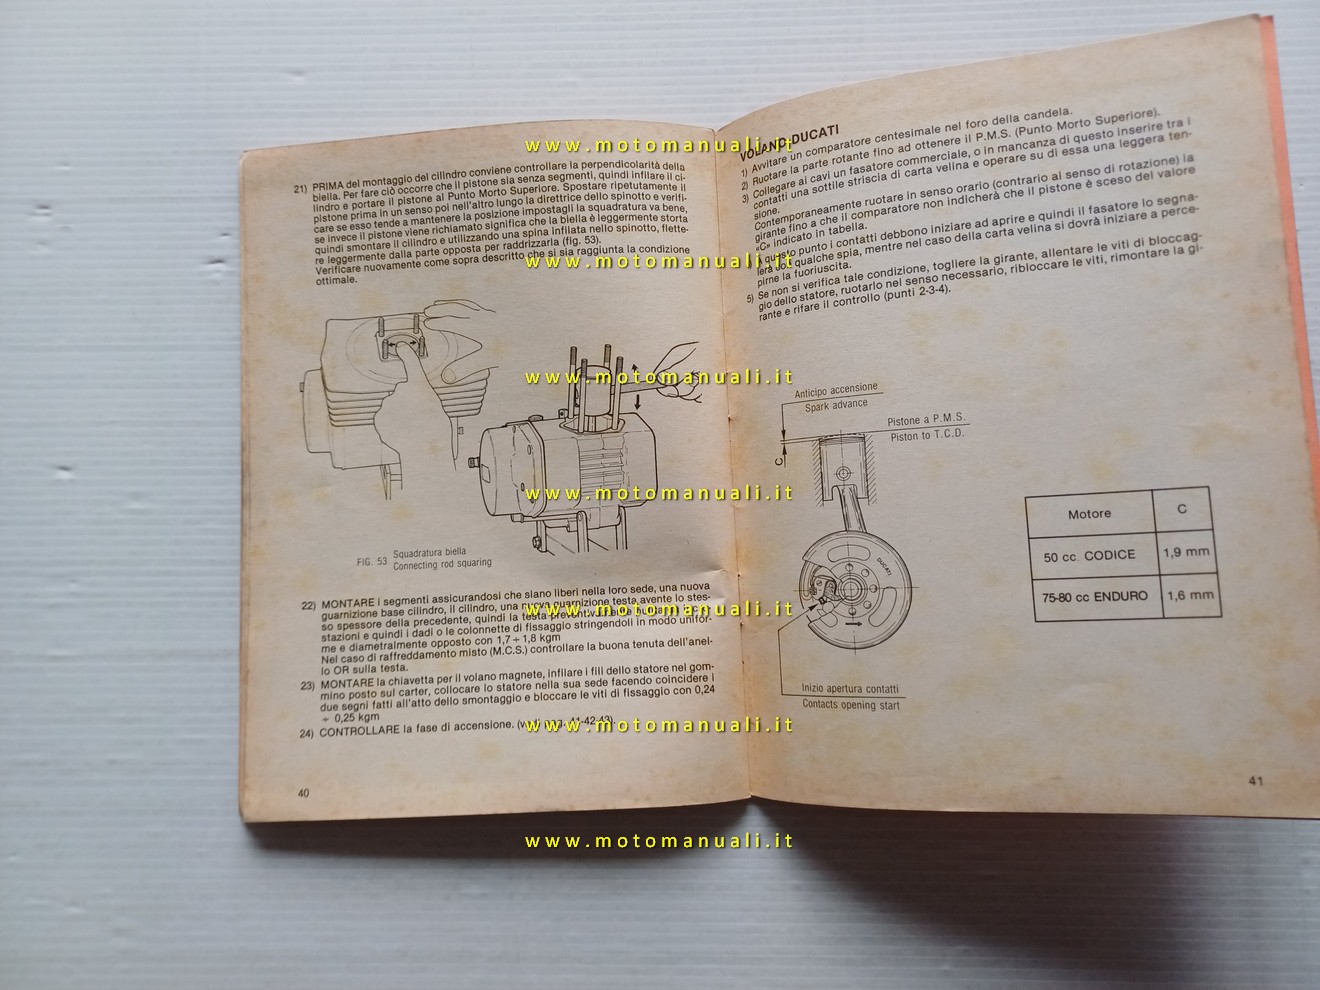 21) PRIMA del montaggio del cilindro conviene controllare la perpendicolarità della
biella. Per fare ciò occorre che il pistone sia senza segmenti, quindi infilare il ci-
lindro e portare il pistone al Punto Morto Superiore. Spostare ripetutamente il
pistone prima in un senso poi nell'altro lungo la direttrice dello spinotto e verifi-
care se esso tende a mantenere la posizione impostagli la squadratura va bene,
se invece il pistone viene richiamato significa che la biella è leggermente storta
quindi smontare il cilindro e utilizzando una spina infilata nello spinotto, flette-
re leggermente dalla parte opposta per raddrizzarla (fig. 53).
Verificare nuovamente come sopra descritto che si sia raggiunta la condizione
ottimale.
FIG. 53
Squadratura biella
Connecting rod squaring
22) MONTARE i segmenti assicurandosi che siano liberi nella loro sede, una nuova
guarnizione base cilindro, il cilindro, una nuova guarnizione testa avente lo stes-
so spessore della precedente, quindi la testa
stazioni e quindi i dadi o le colonnette di fissaggio stringendoli in modo unifor-
me e diametralmente opposto con 1,7 ÷ 1,8 kgm
Nel caso di raffreddamento misto (M.C.S.) controllare la buona tenuta dell'anel-
lo OR sulla testa.
23) MONTARE la chiavetta per il volano magnete, infilare i fili dello statore nel gom-
mino posto sul carter, collocare lo statore nella sua sede facendo coincidere i
due segni fatti all'atto dello smontaggio e bloccare le viti di fissaggio con 0,24
÷ 0,25 kgm
24) CONTROLLARE la fase di accensione. (vedi pag. 41-42-43).
40
VOLANO DUCATI
1) Avvitare un comparatore centesimale nel foro della candela.
2) Ruotare la parte rotante fino ad ottenere il P.M.S. (Punto Morto Superiore).
3) Collegare ai cavi un fasatore commerciale, o in mancanza di questo inserire tra i
contatti una sottile striscia di carta velina e operare su di essa una leggera ten-
sione.
Contemporaneamente ruotare in senso orario (contrario al senso di rotazione) la
girante fino a che il comparatore non indicherà che il pistone è sceso del valore
«C» indicato in tabella.
questo punto i contatti debbono iniziare ad aprire e quindi il fasatore lo segna-
lerà con qualche spia, mentre nel caso della carta velina si dovrà iniziare a perce-
pirne la fuoriuscita.
5) Se non si verifica tale condizione, togliere la girante, allentare le viti di bloccag-
gio dello statore, ruotarlo nel senso necessario, ribloccare le viti, rimontare la gi-
rante e rifare il controllo (punti 2-3-4).
Anticipo accensione
Spark advance
Pistone a P.M.S.
Piston to T.C.D.
C
DUCATI
Inizio apertura contatti
Contacts opening start
Motore C
50 cc. CODICE 1,9 mm
75-80 cc ENDURO 1,6 mm
41
www.motomanuali.it
www.motomanuali.it
www.motomanuali.it
www.motomanuali.it
www.motomanuali.it
www.motomanuali.it
www.motomanuali.it